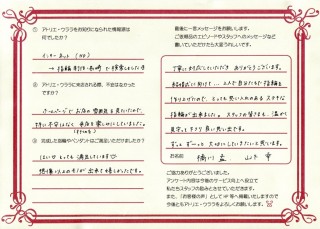 アトリエ・ウララをお知りになられた情報源は
何でしたか?
インターネット(HP)
→ 指輪 手作り・長崎 で検索しました
② アトリエ・ウララに来店される際、不安はなかった
ですか?
ホームページでお店の雰囲気を見ていたので
特に不安はなく 来店を楽しみにしていました。
③ 完成した指輪やペンダントはご満足いただけましたか?
はい♡ とっても 満足しています
想像以上のものが 出来て嬉しかったです。
最後に一言メッセージをお願いします。
ご感想のエピソードやスタッフへのメッセージなど
書いていただけたら大変うれしいです。
丁寧に対応していただき ありがとうございました。
結婚式に向けて… 二人で自分たちで指輪を
作り上げたので、とっても思い入れのあるステキな
指輪が出来ました。スタッフの皆さまも、温かく
見守って下さり 良い思い出です。
ずっとずっと 大切にしていきたいと思います。
お名前
ご協力ありがとうございました。
アンケート内容は今後のサービス向上へ役立て
私たちスタッフの励みとさせていただきます。
また、「お客様の声」として HP 等へ掲載いたしますので
今後ともアトリエ・ウララをよろしくお願いします。